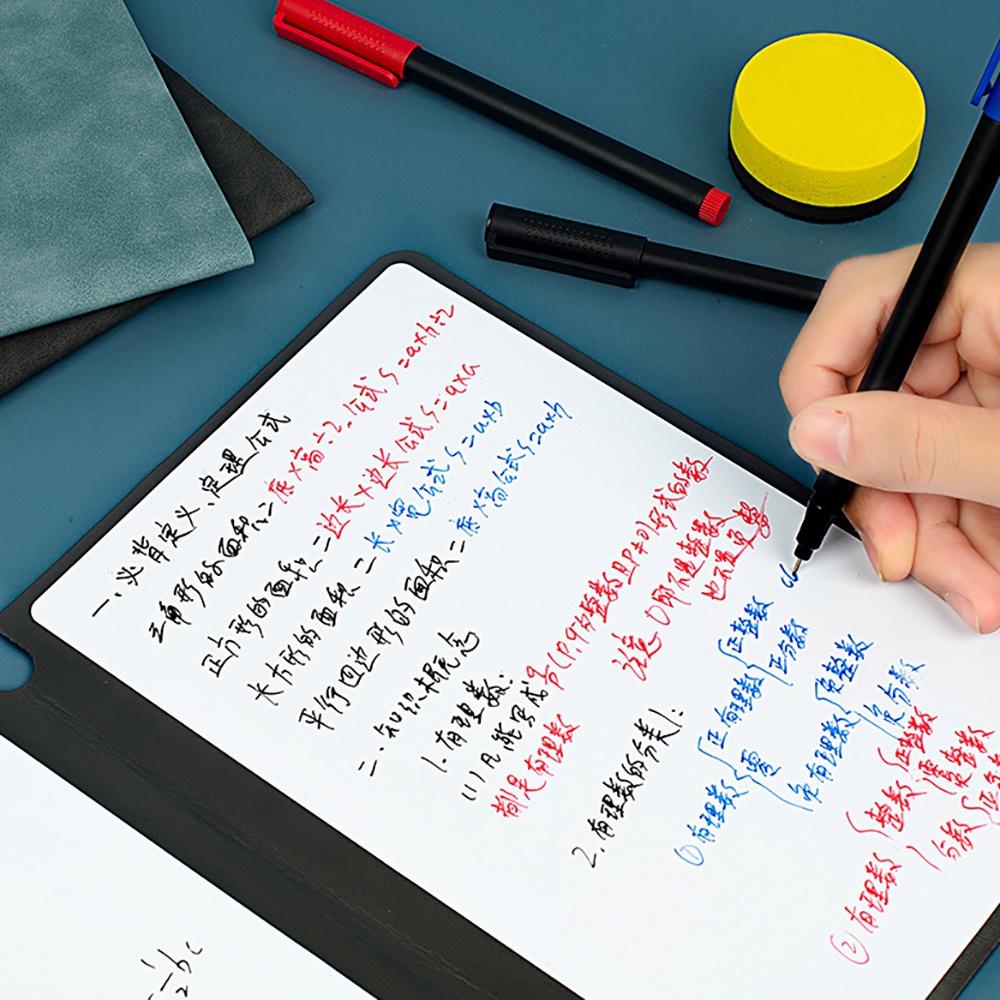 一、必背定义、定理公式
三角形的面积=底×高÷2 公式 S=a×h÷2
正方形的面积=边长×边长 公式 S=a×a
长方形的面积=长×宽 公式 S=a×b
平行四边形的面积=底×高 公式 S=a×h
二.知识概念
1.有理数:
(1)凡能写成q/p(p,q为整数且p≠0)形式的数
都是有理数
注意 0即不是整数
也不是
2.有理数的分类1:
①有理数
正有理数
正整数
正分数
零
负有理数
负整数
负分数
②有理数
整数
正整数
零
负整数
分数
1/2 bc